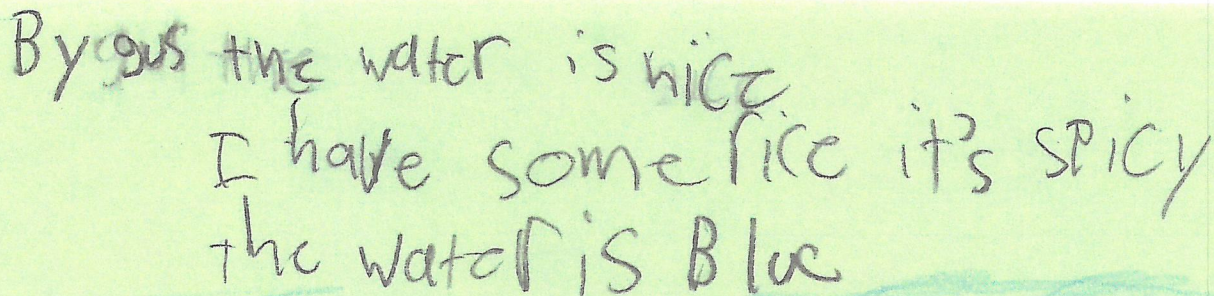 By gus the water is nice
I have some rice it's spicy
the water is Blue